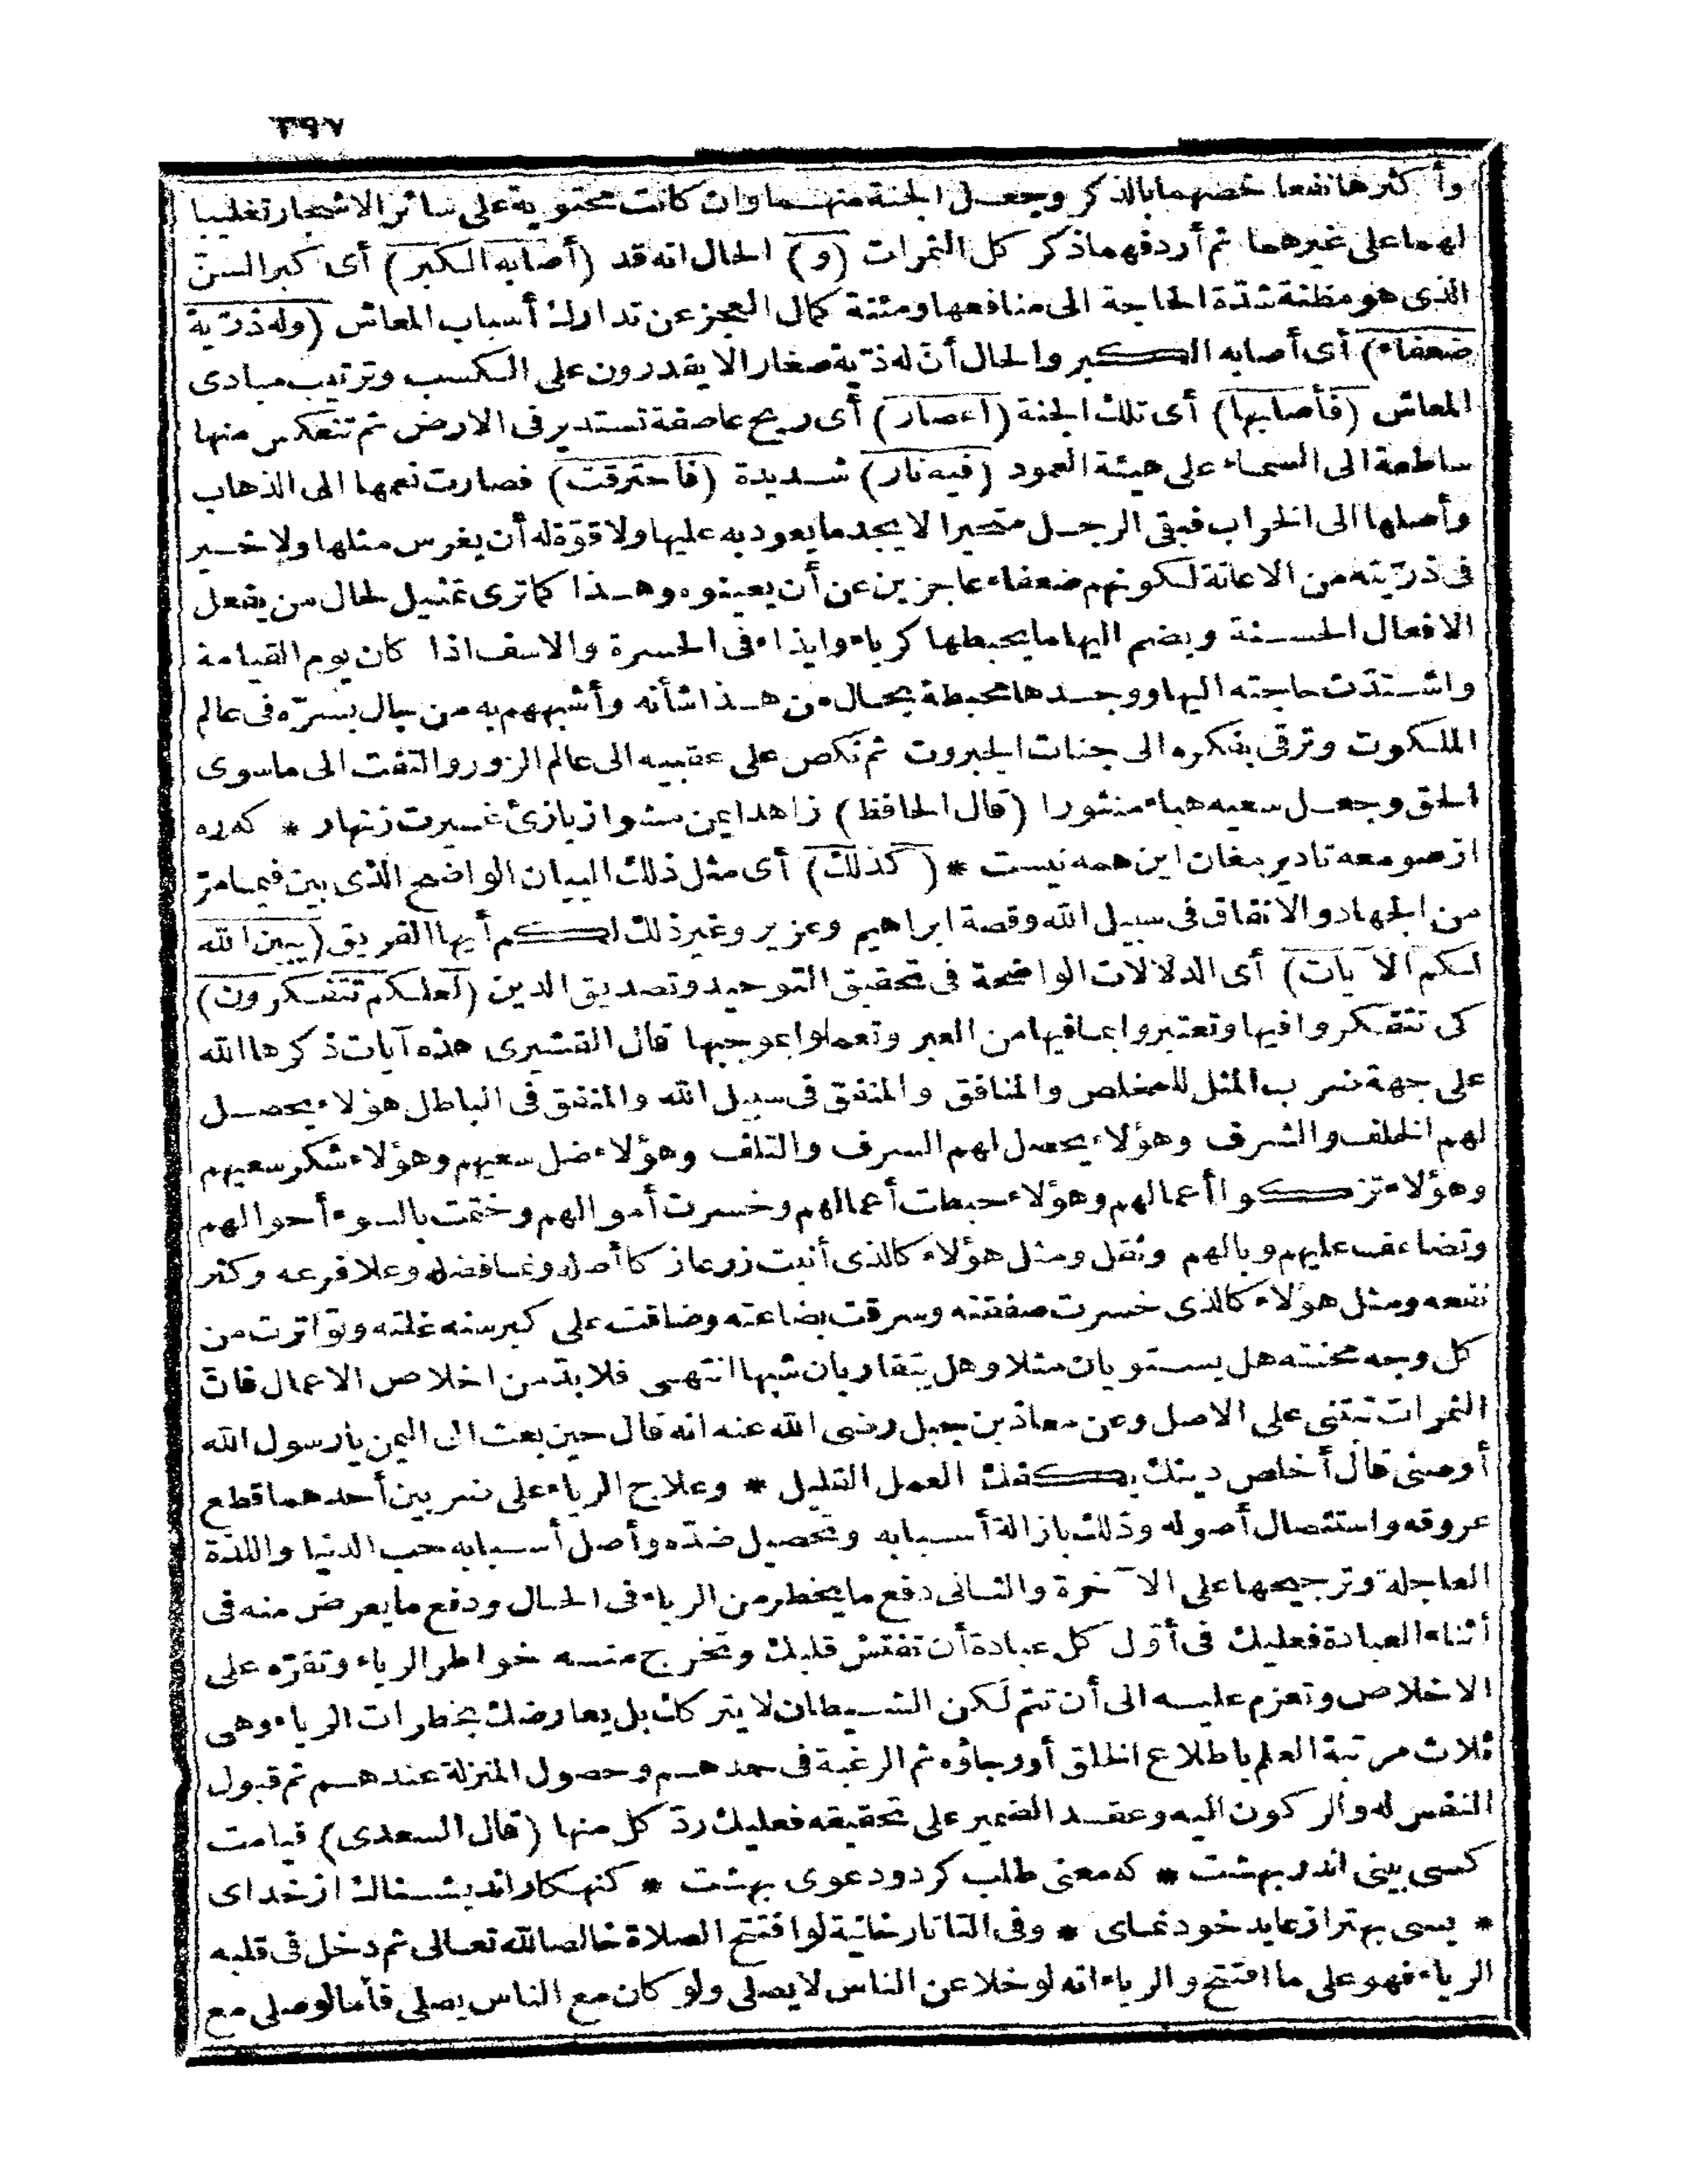 ٣٩٧
وأكثرها نفعا خصهما بالذكر وجعل الجنة منهما وان كانت محتوية على سائر الاشجار تغليبا
لهما على غيرهما ثم أردفهما ذكر كل الثمرات (و) الحال انه قد (أصابه الكبر) أى كبر السنّ
الذى هو مظنة شدّة الحاجة الى منافعها ومئنة كمال العجز عن تدارك أسباب المعاش (وله ذرّية
ضعفاء) أى أصابه الكبر والحال أنّ له ذرّية صغارا لا يقدرون على الكسب وترتيب مبادى
المعاش (فأصابها) أى تلك الجنة (اعصار) أى ريح عاصفة تستدير فى الارض ثم تنعكس منها
ساطعة الى السماء على هيئة العمود (فيه نار) شديدة (فاحترقت) فصارت نعمها الى الذهاب
وأصلها الى الخراب فبقى الرجل متحيرا لا يجد ما يعود به عليها ولا قوّة له أن يغرس مثلها ولا خير
فى ذرّيته من الاعانة لكونهم ضعفاء عاجزين عن أن يعينوه وهذا كما ترى تمثيل لحال من يفعل
الافعال الحسنة ويضم اليها ما يحبطها كرياء وايذاء فى الحسرة والاسف اذا كان يوم القيامة
واشتدّت حاجته اليها ووجدها محبطة بحال من هذا شأنه وأشبههم به من جال بسرّه فى عالم
الملكوت وترقى بفكره الى جنات الجبروت ثم نكص على عقبيه الى عالم الزور والتفت الى ما سوى
الحق وجعل سعيه هباء منثورا (قال الحافظ) زاهد ايمن مشو از بازئ غيرت زنهار * كه ره
از صومعه تا دير مغان اين همه نيست * (كذلك) أى مثل ذلك البيان الواضح الذى بين فيما مرّ
من الجهاد والانفاق فى سبيل الله وقصة ابراهيم وعزير وغير ذلك لكم أيها الفريق (يبين الله
لكم الآيات) أى الدلالات الواضحة فى تحقيق التوحيد وتصديق الدين (لعلكم تتفكرون)
كى تتفكروا فيها وتعتبروا بما فيها من العبر وتعملوا بموجبها قال القشيرى هذه آيات ذكرها الله
على جهة ضرب المثل للمخلص والمنافق والمنفق فى سبيل الله والمنفق فى الباطل هؤلاء يحصل
لهم الخلف والشرف وهؤلاء يحصل لهم السرف والتلف وهؤلاء ضل سعيهم وهؤلاء شكر سعيهم
وهؤلاء تزكوا أعمالهم وهؤلاء حبطت أعمالهم وخسرت أموالهم وختمت بالسوء أحوالهم
وتضاعف عليهم وبالهم وثقل ومثل هؤلاء كالذى أنبت زرعا زكا أصله ونما فضله وعلا فرعه وكثر
نفعه ومثل هؤلاء كالذى خسرت صفقته وسرقت بضاعته وضاقت على كبر سنه غلته وتواترت من
كل وجه محنته هل يستويان مثلا وهل يتقاربان شبها انتهى فلا بدّ من اخلاص الاعمال فانّ
الثمرات تبتنى على الاصل وعن معاذ بن جبل رضى الله عنه انه قال حين بعث الى اليمن يا رسول الله
أوصنى قال أخلص دينك يكفك العمل القليل * وعلاج الرياء على ضربين أحدهما قطع
عروقه واستئصال أصوله وذلك بازالة أسبابه وتحصيل ضدّه وأصل أسبابه حب الدنيا واللذة
العاجلة وترجيحها على الآخرة والثانى دفع ما يخطر من الرياء فى الحال ودفع ما يعرض منه فى
أثناء العبادة فعليك فى أوّل كل عبادة أن تفتش قلبك وتخرج منه خواطر الرياء وتقرّه على
الاخلاص وتعزم عليه الى أن تتم لكن الشيطان لا يتركك بل يعارضك بخطرات الرياء وهى
ثلاث مرتبة العلم باطلاع الخلق أو رجاؤه ثم الرغبة فى حمدهم وحصول المنزلة عندهم ثم قبول
النفس له والركون اليه وعقد الضمير على تحقيقه فعليك ردّ كل منها (قال السعدى) قيامت
كسى بينى اندر بهشت * كه معنى طلب كرد ودعوى بهشت * كنهكار انديشناك از خداى
* بسى بهتر از عابد خودنماى * وفى التاتارخانية لو افتتح الصلاة خالصا لله تعالى ثم دخل فى قلبه
الرياء فهو على ما افتتح والرياء انه لو خلا عن الناس لا يصلى ولو كان مع الناس يصلى فأما لو صلى مع